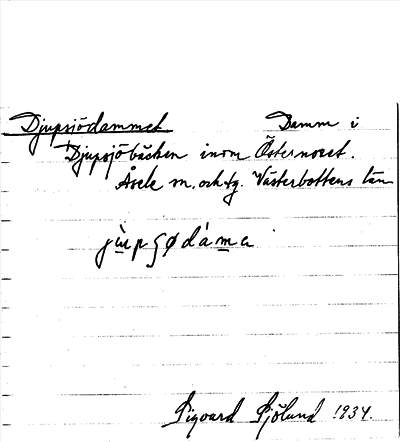 Djupsjödammet Damm i
Djupsjöbäcken inom Östernoret.
Åsele sn. och tg. Västerbottens län
jùpʂødáma
Sigvard Sjölund 1934.